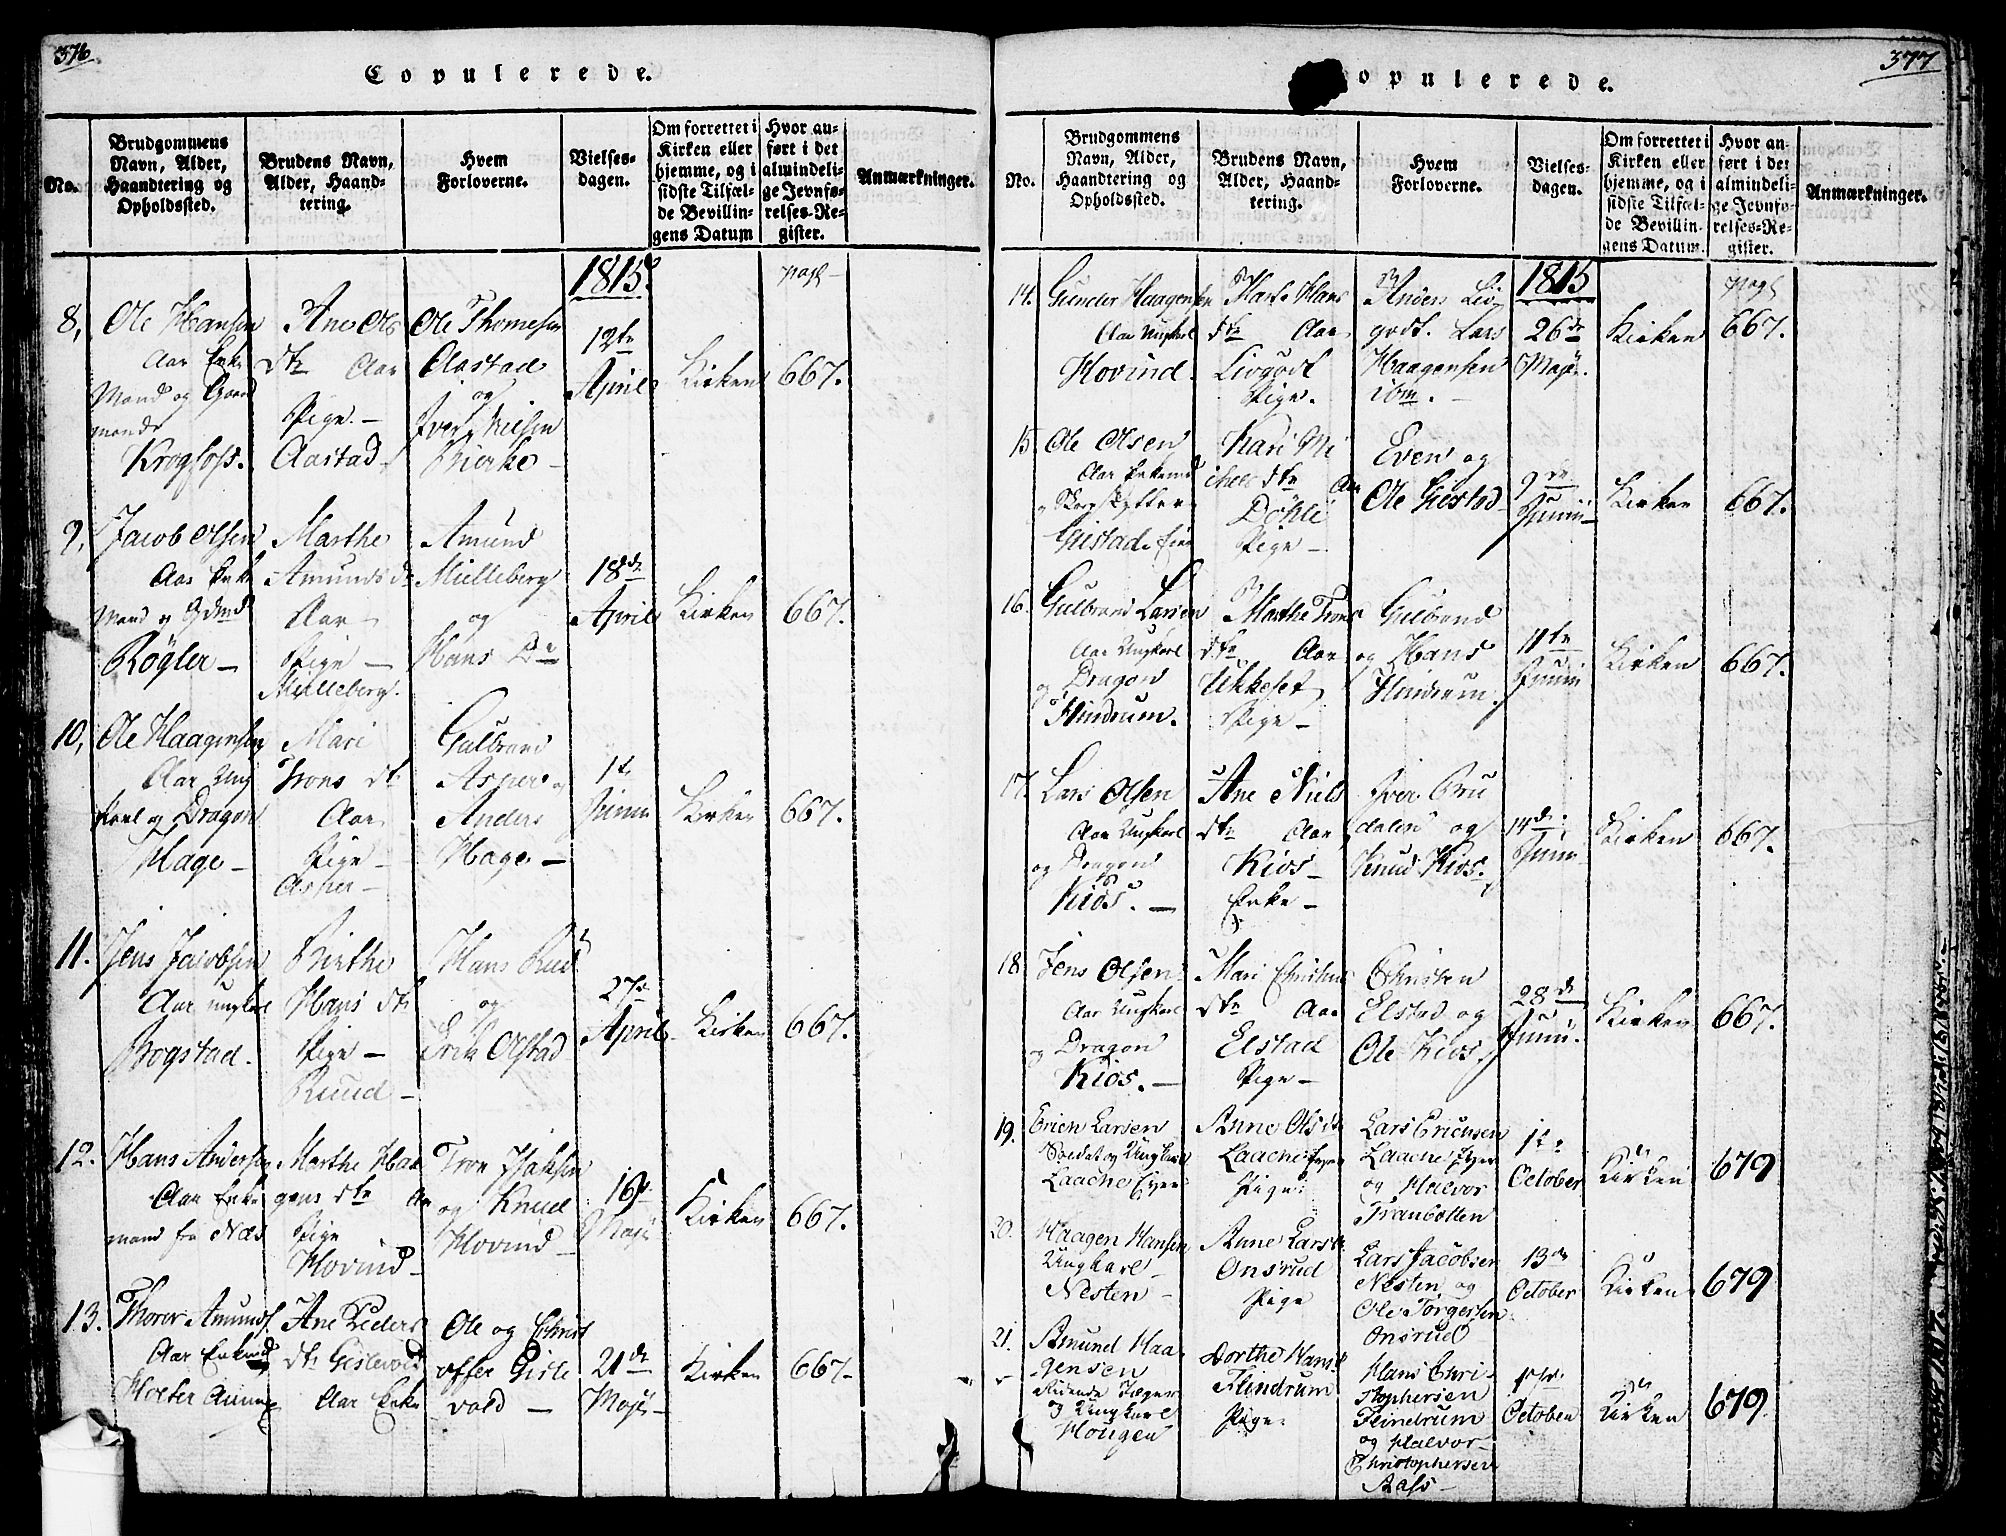 376
Copulerede.
No.
Brudgommens
Navn, Alder,
Haandtering og
Opholdssted.
Brudens Navn,
Alder, Haand-
tering.
Hvem
Forloverne.
Vielses-
dagen.
Om forrettet i
Kirken eller
hjemme, og i
sidste Tilfæl-
de Bevillin-
gens Datum
Hvor an-
ført i det
almindeli-
ge Jevnfø-
relses-Re-
gister.
Anmærkninger.
1815.
pag
8,
Ole Hansen
Aar Enke
Mand og Gaard
mand
Krogfoss.
Ane Ols
dtr Aar
Pige. -
Aastad
Ole Thomesen
Aastad
og
Iver Nielsen
Bierke -
12te
April
Kirken
667.
9,
Jacob Olsen
Aar Enke
Mand og Gdmd
Røgler -
Marthe
Amunds dtr
Aar
Pige -
Mulleberg.
Amund
Mulleberg
og
Hans Do
18de
April
Kirken
667.
10,
Ole Haagensen
Aar Ung
karl og Dragon
Hage -
Mari
Trons dtr
Aar
Pige -
Asper -
Gulbrand
Asper og
Anders
Hage -
1te
Junii
Kirken
667.
11.
Jens Jacobsen
Aar ungkarl
Bogstad.
Birthe
Hans dtr
Pige -
Ruud -
Hans Rud
og
Erik Olstad
27de
April
Kirken
667.
12.
Hans Andersen
Aar Enke
mand fra Næs
Marthe Haa
gens dtr Aar
Pige
Hovind -
Tron Isaksen
og Knud
Hovind -
16de
Maji
Kirken
667.
13.
Thorer Amunds
Aar Enkemd
Holter
Ane Peders
dtr Gislevold
Aar Enke
Ole og Christ
offer Gisle
vold -
21de
Maji -
Kirken
667.
377
opulerede.
No.
Brudgommens
Navn, Alder,
Haandtering og
Opholdssted.
Brudens Navn,
Alder, Haand-
tering.
Hvem
Forloverne.
Vielses-
dagen.
Om forrettet i
Kirken eller
hjemme, og i
sidste Tilfæl-
de Bevillin-
gens Datum.
Hvor an-
ført i det
almindeli-
ge Jevnfø-
relses-Re-
gister.
Anmærkninger.
1815
pag
14.
Gunder Haagensen
Aar Ungkarl
Hovind.
Marte Hans
dtr Aar
Livgodt
Pige.
Anders Liv
godt. Lars
Haagensen
ibm. -
26de
Maji.
Kirken
667.
15
Ole Olsen
Aar Enkemd
og Skarpskytter
Gistad
Kari Mi
chels dtr Aar
Døhli
Pige -
Even og
Ole Gistad
9de
Junii
Kirken
667.
16.
Gulbrand Larsen
Aar Ungkarl
og Dragon
Flindrum.
Marthe Trons
dtr Aar
Ukkeset
Pige -
Gulbrand
og Hans
Hindrum.
11te
Junii
Kirken
667.
17.
Lars Olsen
Aar Ungkarl
og Dragon
Kios. -
Ane Niels
dtr Aar
Kios -
Enke -
Iver Bru
dalen og
Knud Kios.
14de
Junii
Kirken
667.
18
Jens Olsen
Aar Ungkarl
og Dragon
Kios. -
Mari Christens
dtr Aar
Elstad
Pige -
Christen
Elstad og
Ole Kios.
28de
Junii.
Kirken
667.
19.
Erien Larsen
Soldat og Ungkarl
Laache Eyer
Anne Ols dtr
Laache Eyer
Pige:
Lars Ericnsen
Laache Eyer
og Halvor
Tranbotten
1te
October
Kirken
679
20.
Haagen Hansen
Ungkarl -
Nesten -
Anne Lars dtr
Onsrud
Pige
Lars Jacobsen
Nesten og
Ole Torgersen
Onsrud
13de
October
Kirken
679
21.
Amund Haa
gensen
Ridende Jæger
og Ungkarl
Hougen
Dorthe Hans dtr
Flindrum
Pige.
Hans Chri-
stophersen
Flindrum
og Halvor
Christophersen
Aass -
October
Kirken
679.